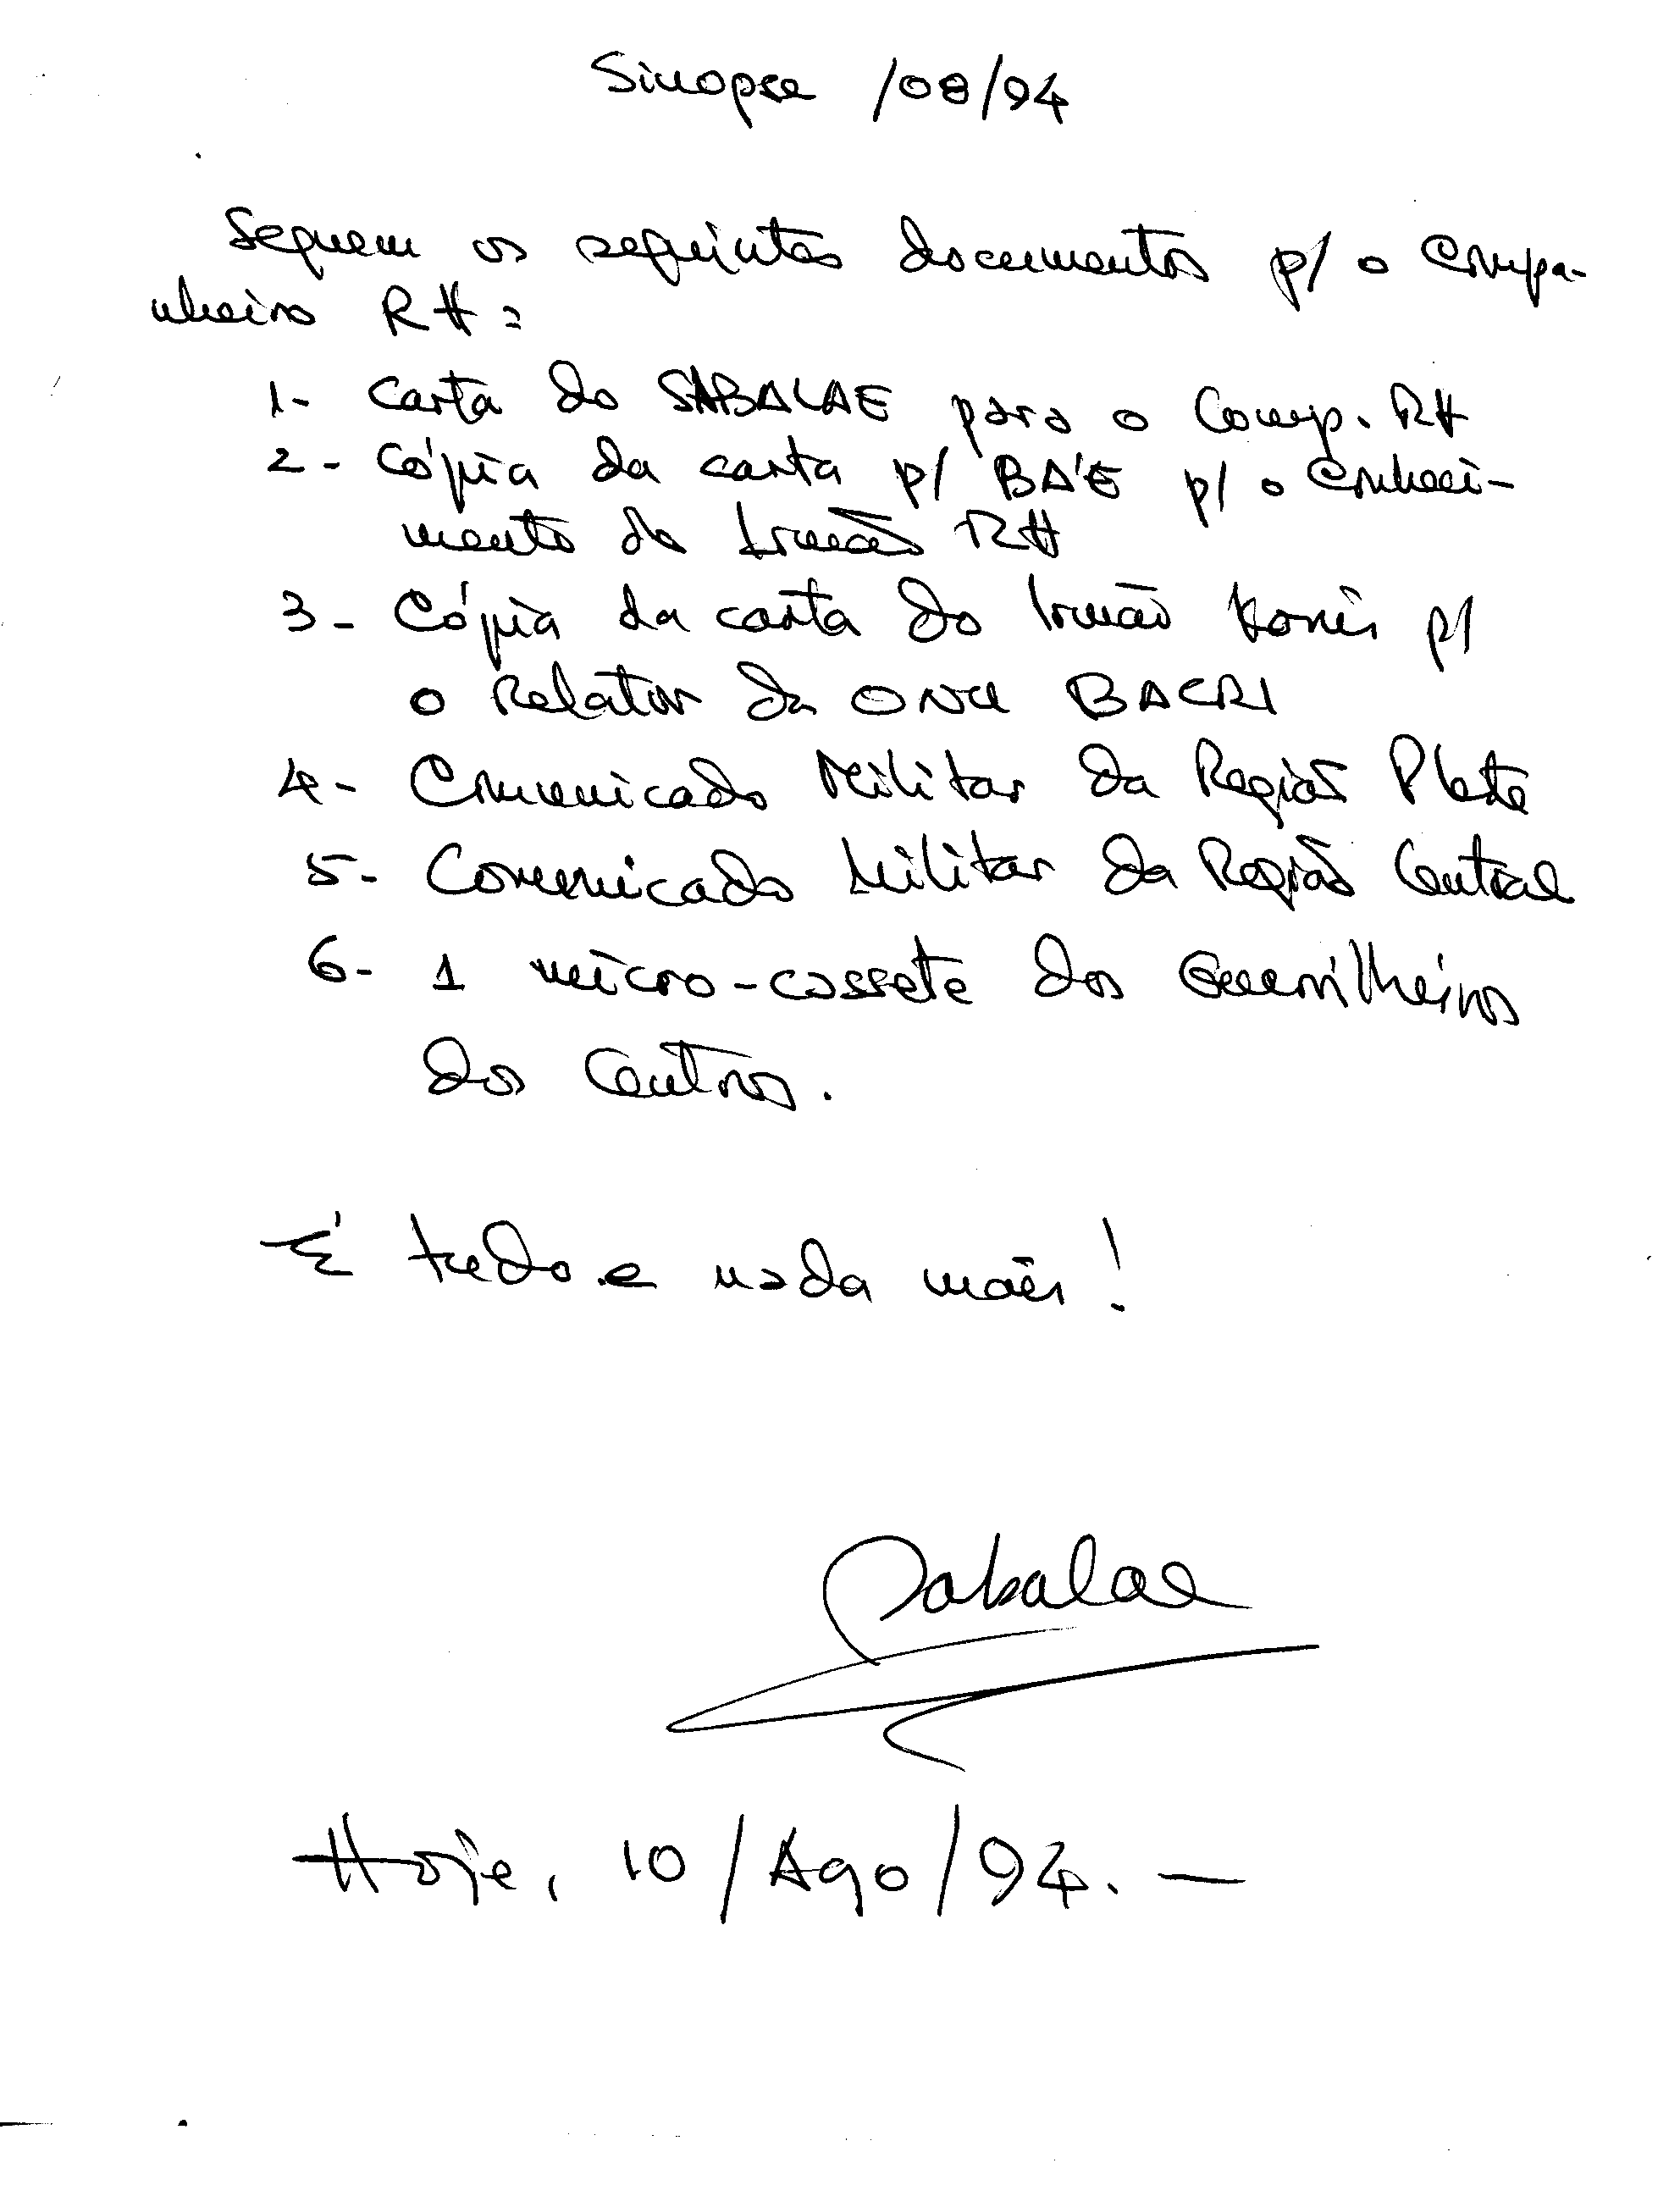 Sinopse /08/94
Seguem os seguintes documentos p/ o Compa-
nheiro RH:
1- Carta do SABALAE para o Comp. RH
2- Cópia da carta p/ BA'E p/ o conheci-
mento do Irmão RH
3- Cópia da carta do Irmão Konis p/
o Relator da ONU BACRI
4- Comunicado Militar da Região Leste
5- Comunicado Militar da Região Central
6- 1 micro-cassete dos Guerrilheiros
do Centro.
É tudo e nada mais!
Sabalae
Hoje, 10/Ago/94.-